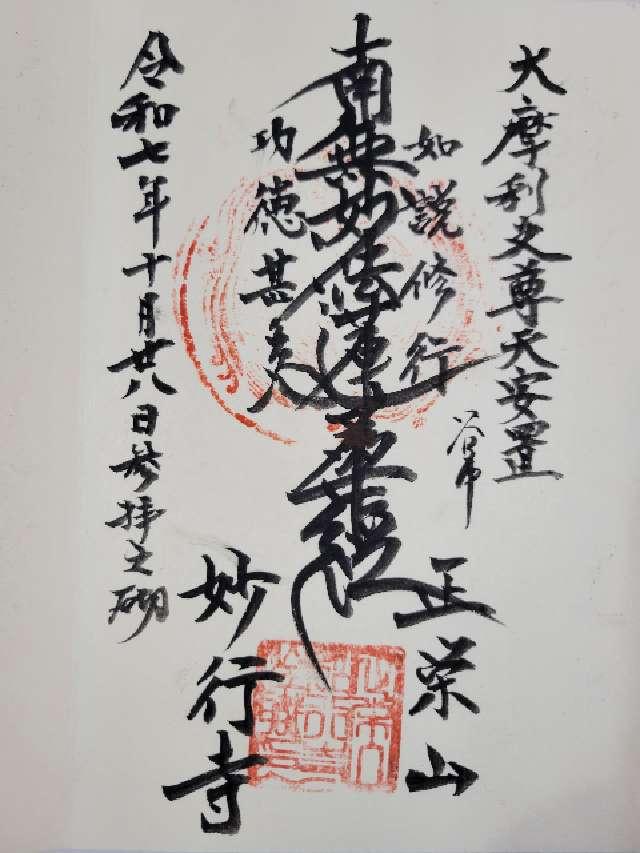 大摩利支尊天安置
如説修行
南無妙法蓮華経
功徳甚多
令和七年十月廿八日参拝之砌
正栄山
妙行寺